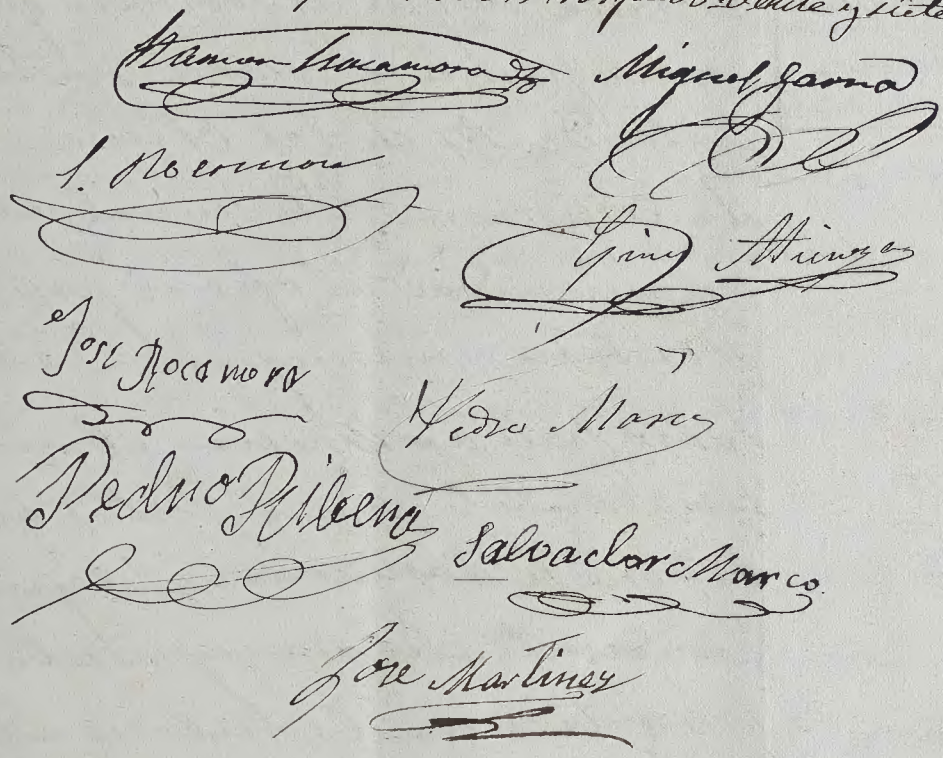 veinte y siete
Ramon Rocamora Miguel Garcia
J. Rocamora
Gines
Jose Rocamora
Pedro Marco
Pedro Ribera
Salvador Marco
Jose Martinez